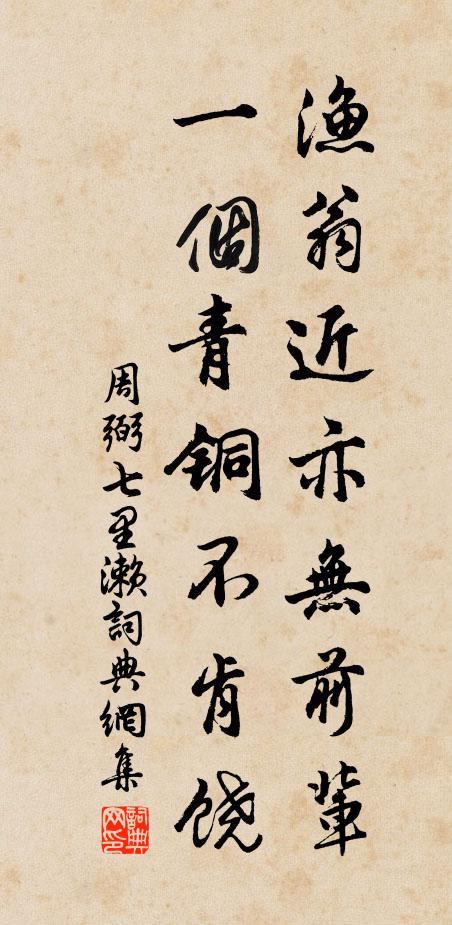 漁翁近亦無前輩
一個青銅不肯饒
周弼七里瀨詞典網集
詞典网印